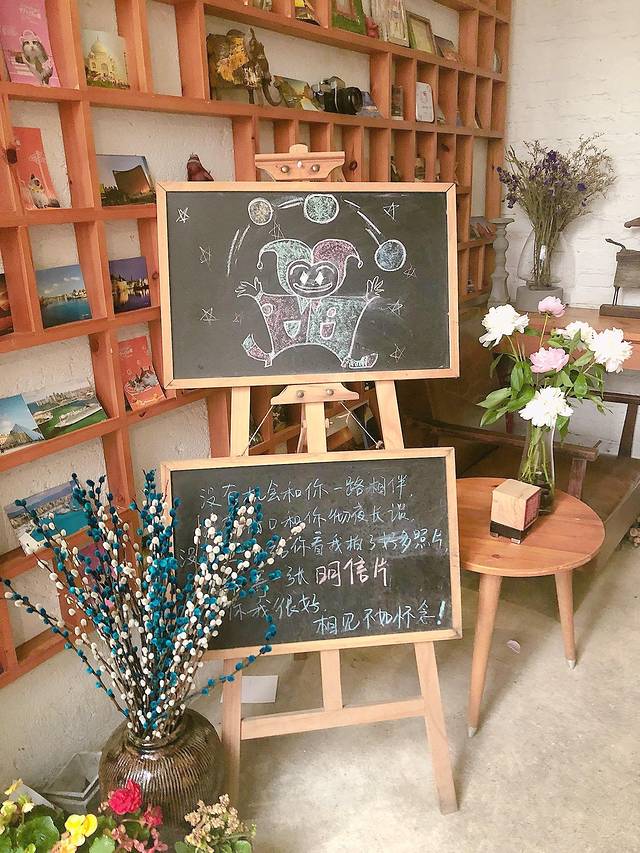 没有机会和你一路相伴,
口和你彻夜长谈
没 你看我拍了好多照片
张 明信片
你我很好,
相见不如怀念!